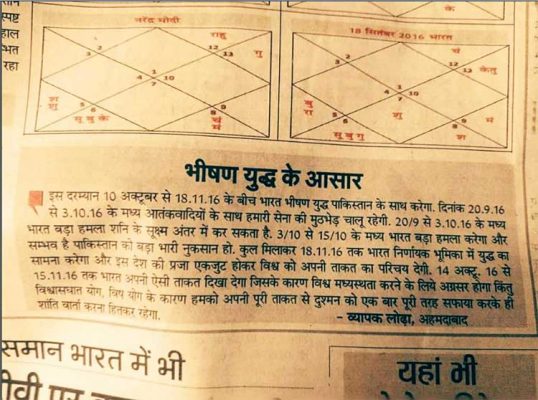 स्पष्ट
हाल
भत
रहा
के
नरेंद्र मोदी
राहु
गु
3
2
12
11
1
4
10
7
श
शु
5
6
9
8
सू बु के
चं
मं
18 सितंबर 2016 भारत
चं
केतु
3
2
12
11
1
4
10
7
बु
रा
5
6
9
8
मं
शु
श
सू बु गु
भीषण युद्ध के आसार
इस दरम्यान 10 अक्टूबर से 18.11.16 के बीच भारत भीषण युद्ध पाकिस्तान के साथ करेगा. दिनांक 20.9.16
से 3.10.16 के मध्य आतंकवादियों के साथ हमारी सेना की मुठभेड़ चालू रहेगी. 20/9 से 3.10.16 के मध्य
भारत बड़ा हमला शनि के सूक्ष्म अंतर में कर सकता है. 3/10 से 15/10 के मध्य भारत बड़ा हमला करेगा और
सम्भव है पाकिस्तान को बड़ा भारी नुकसान हो. कुल मिलाकर 18.11.16 तक भारत निर्णायक भूमिका में युद्ध का
सामना करेगा और इस देश की प्रजा एकजुट होकर विश्व को अपनी ताकत का परिचय देगी. 14 अक्टू. 16 से
15.11.16 तक भारत अपनी ऐसी ताकत दिखा देगा जिसके कारण विश्व मध्यस्थता करने के लिये अग्रसर होगा किंतु
विश्वासघात योग, विष योग के कारण हमको अपनी पूरी ताकत से दुश्मन को एक बार पूरी तरह सफाया करके ही
शांति वार्ता करना हितकर रहेगा.
- व्यापक लोढ़ा, अहमदाबाद
समान भारत में भी
यहां भी